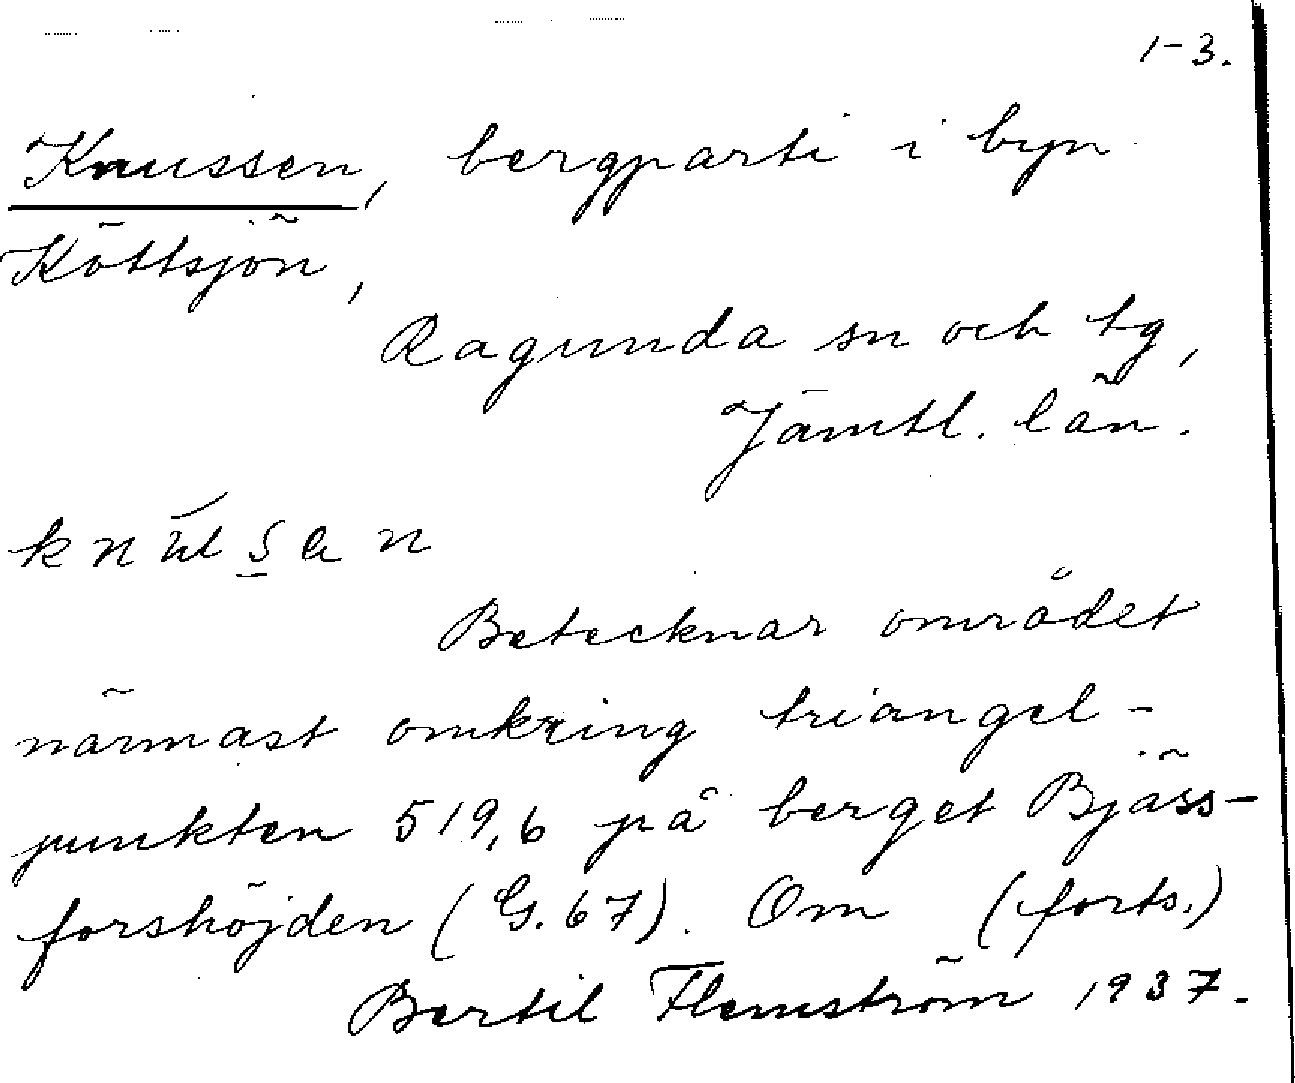 1-3.
Knussen, bergparti i byn
Köttsjön,
Ragunda sn och tg,
Jämtl. län.
Betecknar området
närmast omkring triangel-
punkten 519,6 på berget Bjäss-
forshöjden (G. 67). Om (forts.)
Bertil Flemström 1937.